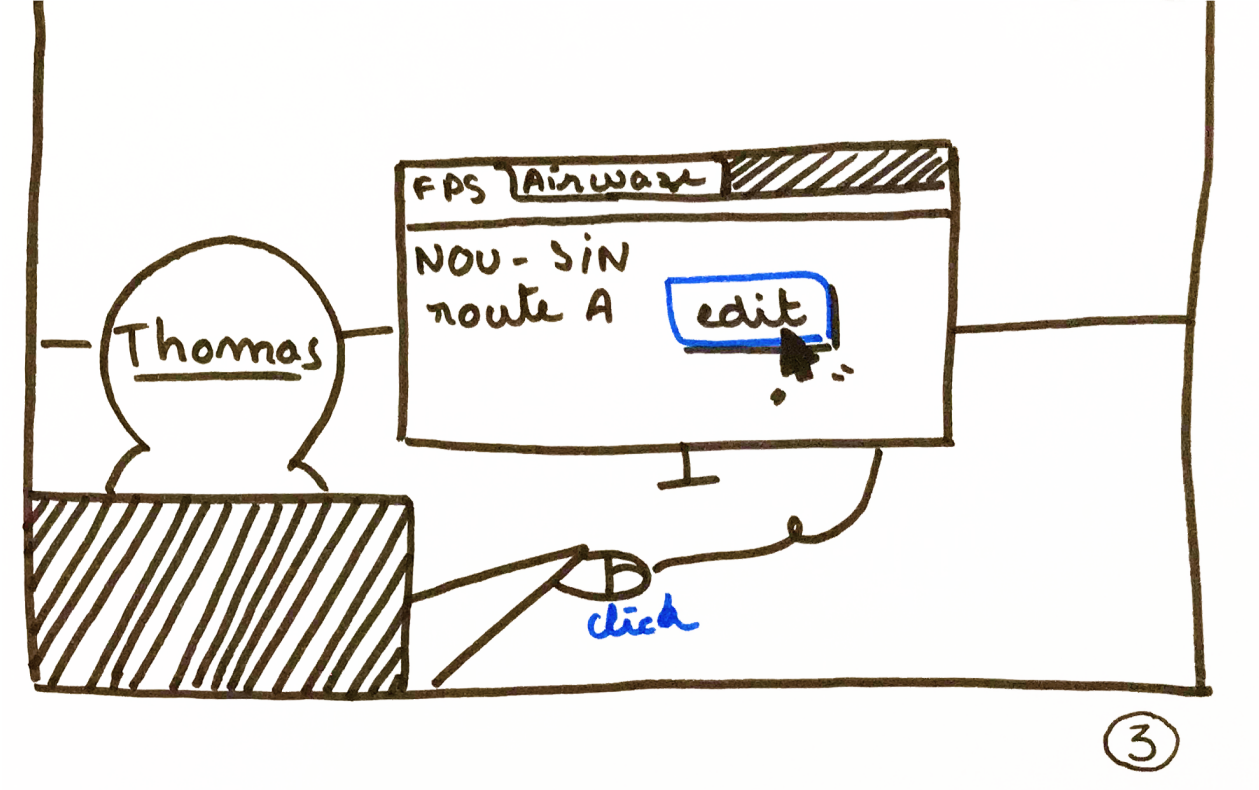 FPS Airwaze
NOU - SIN
route A
edit
Thomas
click
3